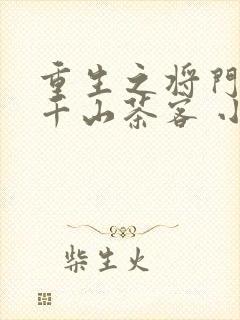 重生之将门
千山茶客 小
柴生火